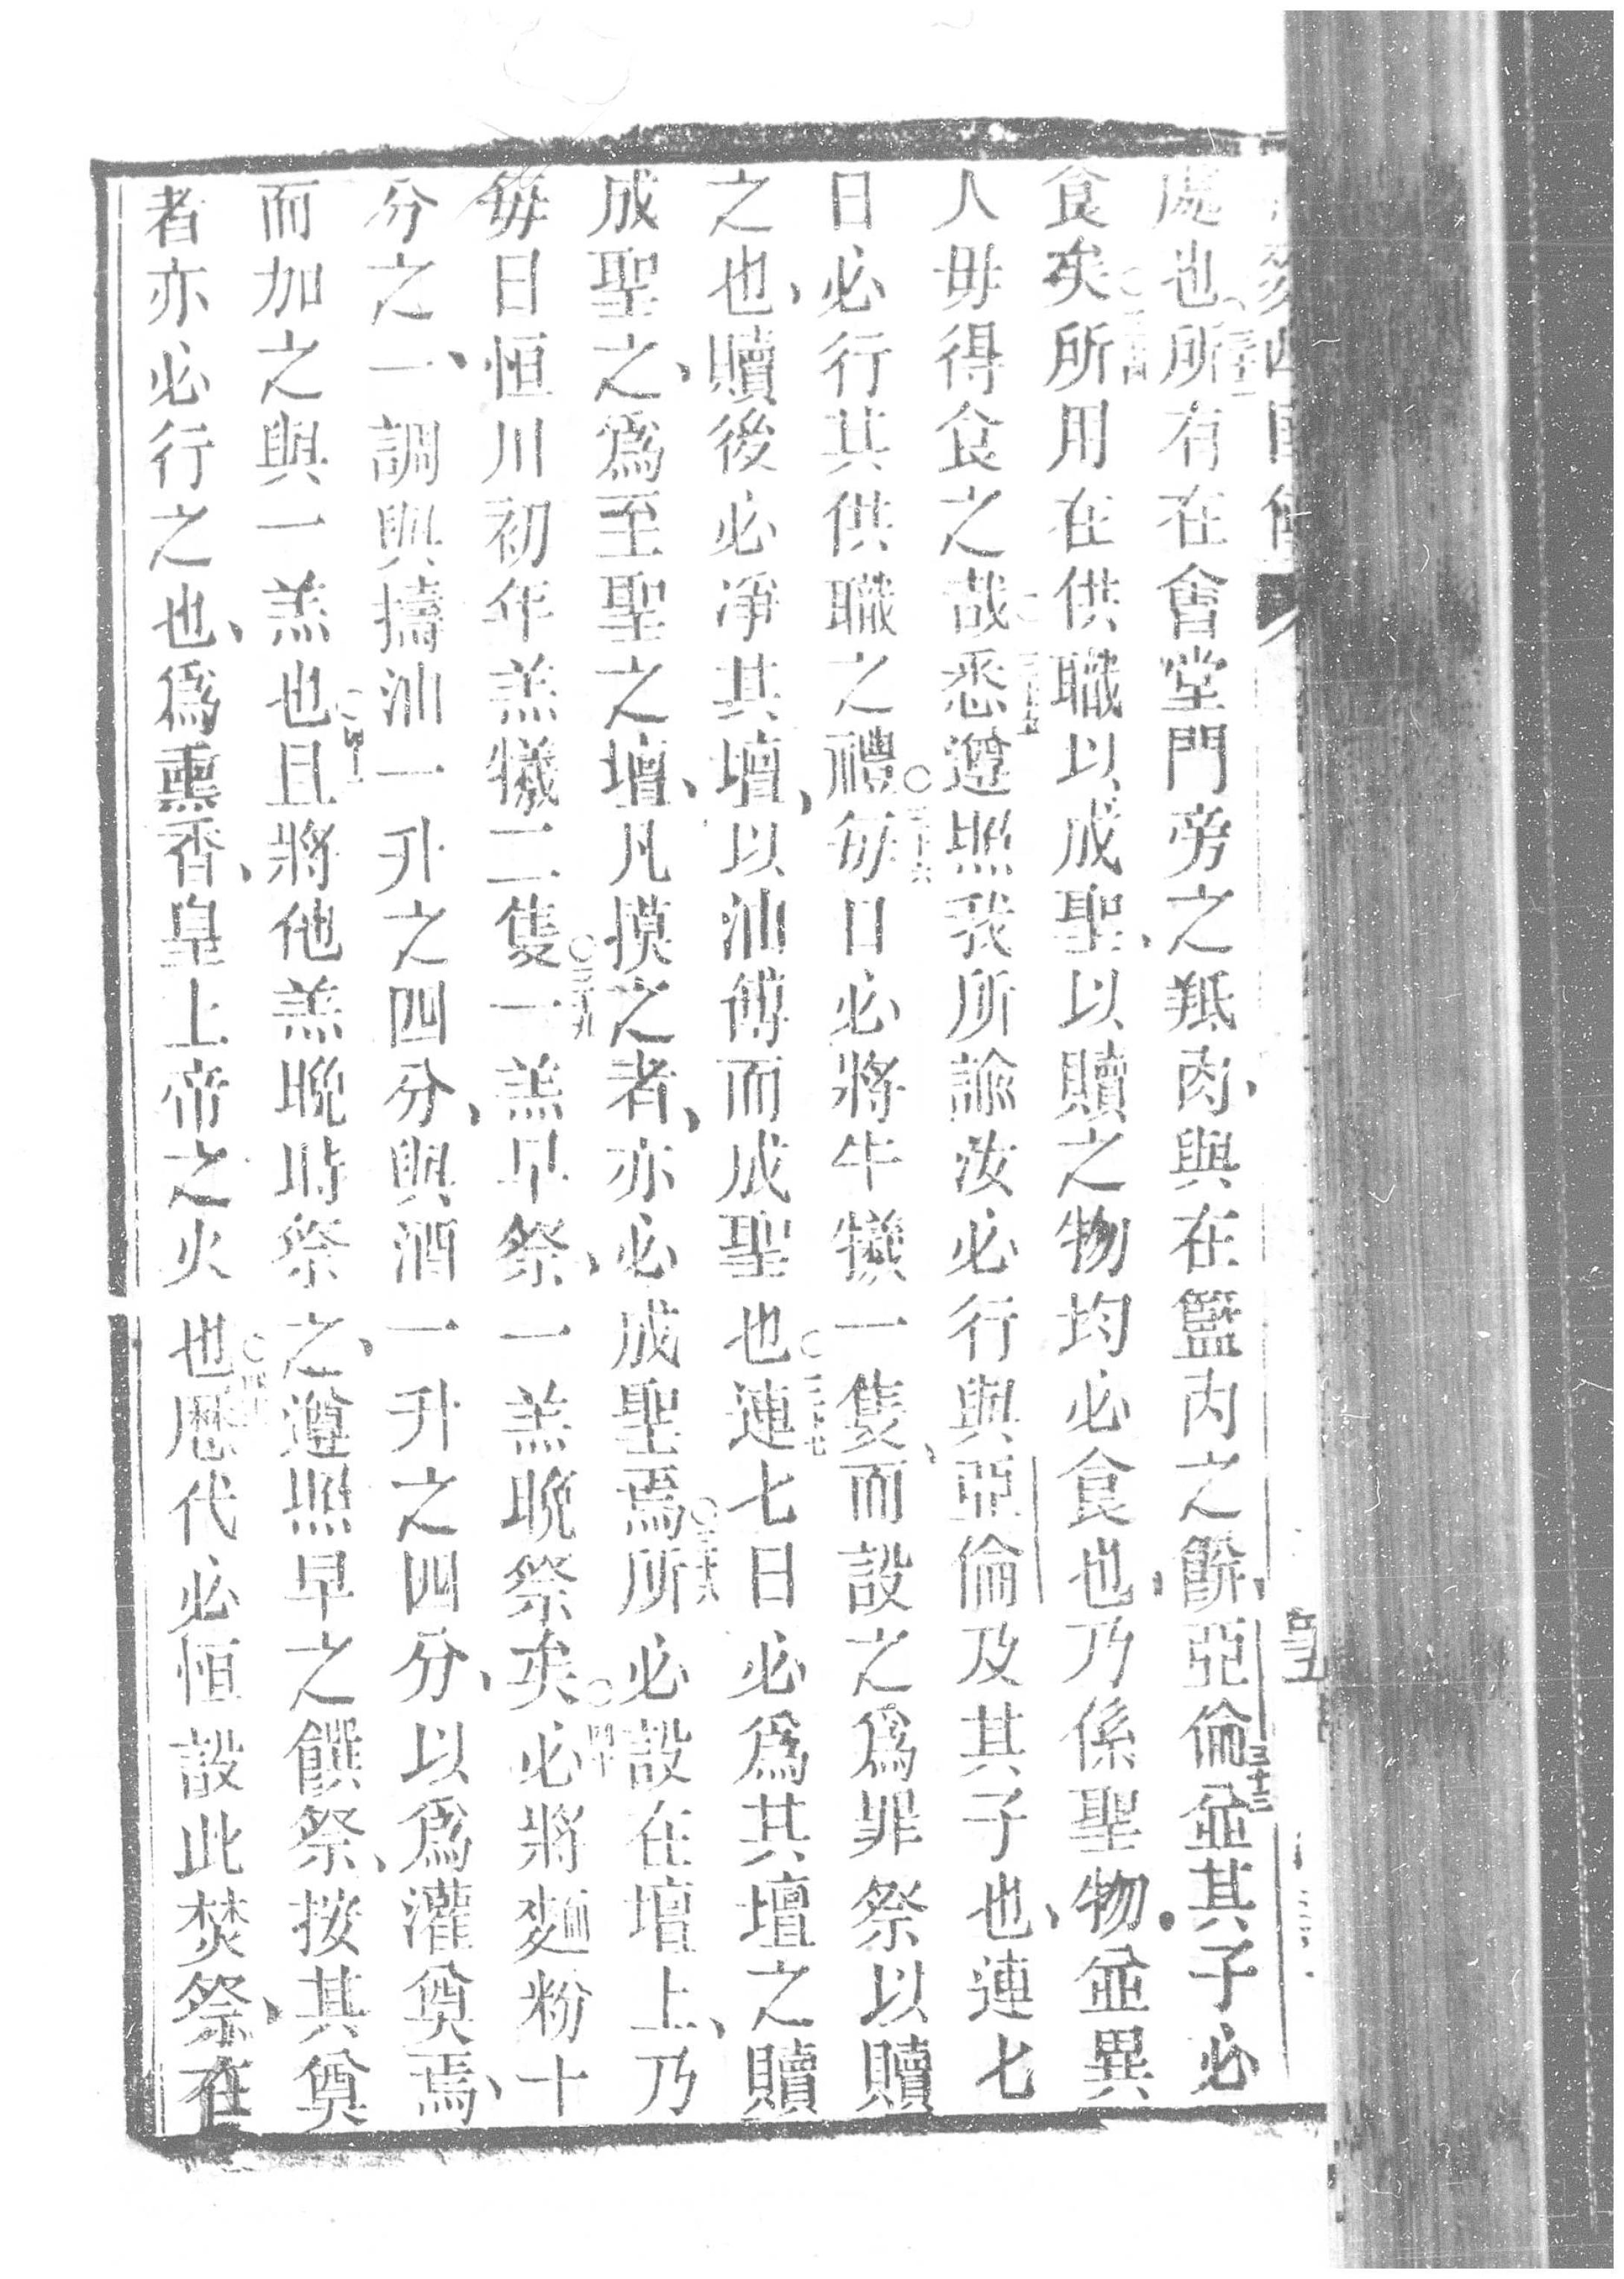 處也、○三十二所有在會堂門旁之羝肉、與在籃內之餘、亞倫並其子必
食矣○三十三所用在供職以成聖、以贖之物均必食也、乃係聖物。並異
人毋得食之哉○三十五悉遵照我所諭汝必行與亞倫及其子也、連七
日必行其供職之禮○三十六每日必將牛犧一隻、而設之爲罪祭以贖
之也、贖後必凈其壇、以油傅而成聖也○三十七連七日必爲其壇之贖
成聖之、爲至聖之壇、凡摸之者、亦必成聖焉○三十八所必設在壇上、乃
每日恒川初年羔犧二隻○三十九一羔早祭、一羔晚祭矣○四十必將麵粉十
分之一、調與擣油一升之四分、與酒一升之四分、以爲灌奠焉、
而加之與一羔也○四十一且將他羔晚時祭之、遵照早之饌祭、按其奠
者亦必行之也、爲熏香、皇上帝之火也○四十二歷代必恒設此焚祭、在